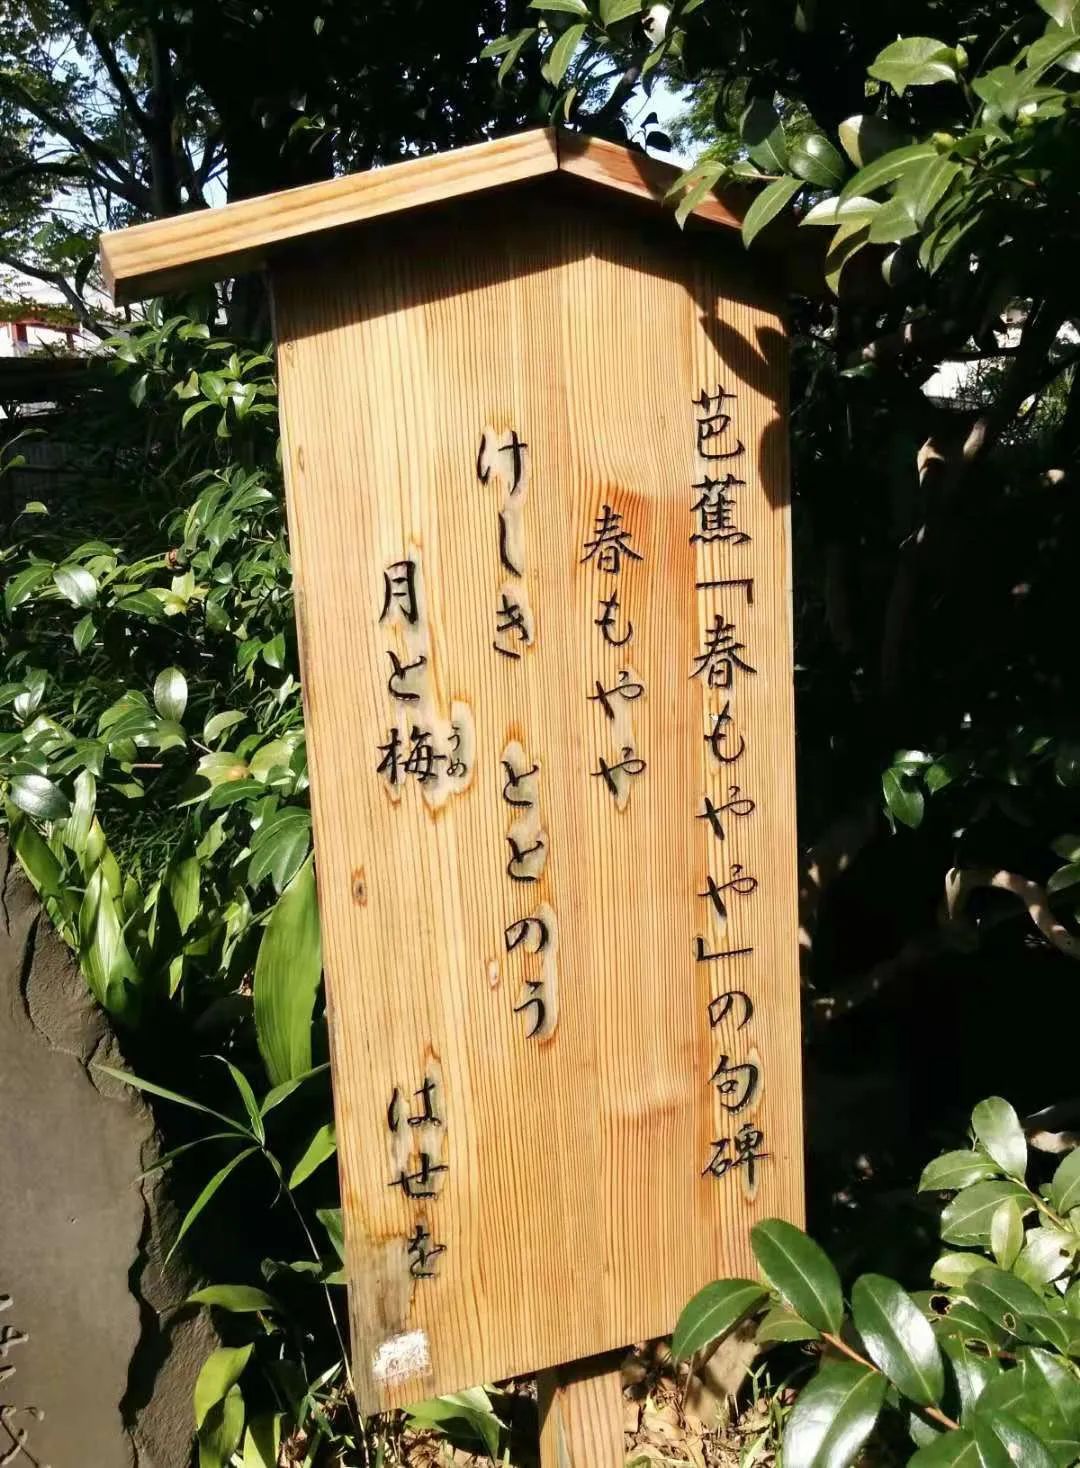 芭蕉「春もやや」の句碑
春もやや
けしき ととのう
月と梅 はせを
うめ